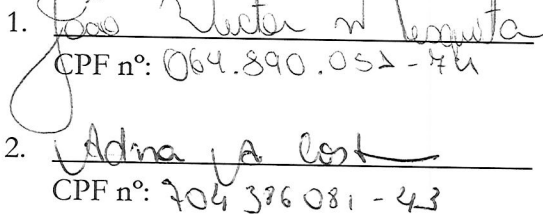 1. João Victor M Mesquita
CPF nº: 064.890.051-74
2. Adna A Cost
CPF nº: 704 386 081 - 43